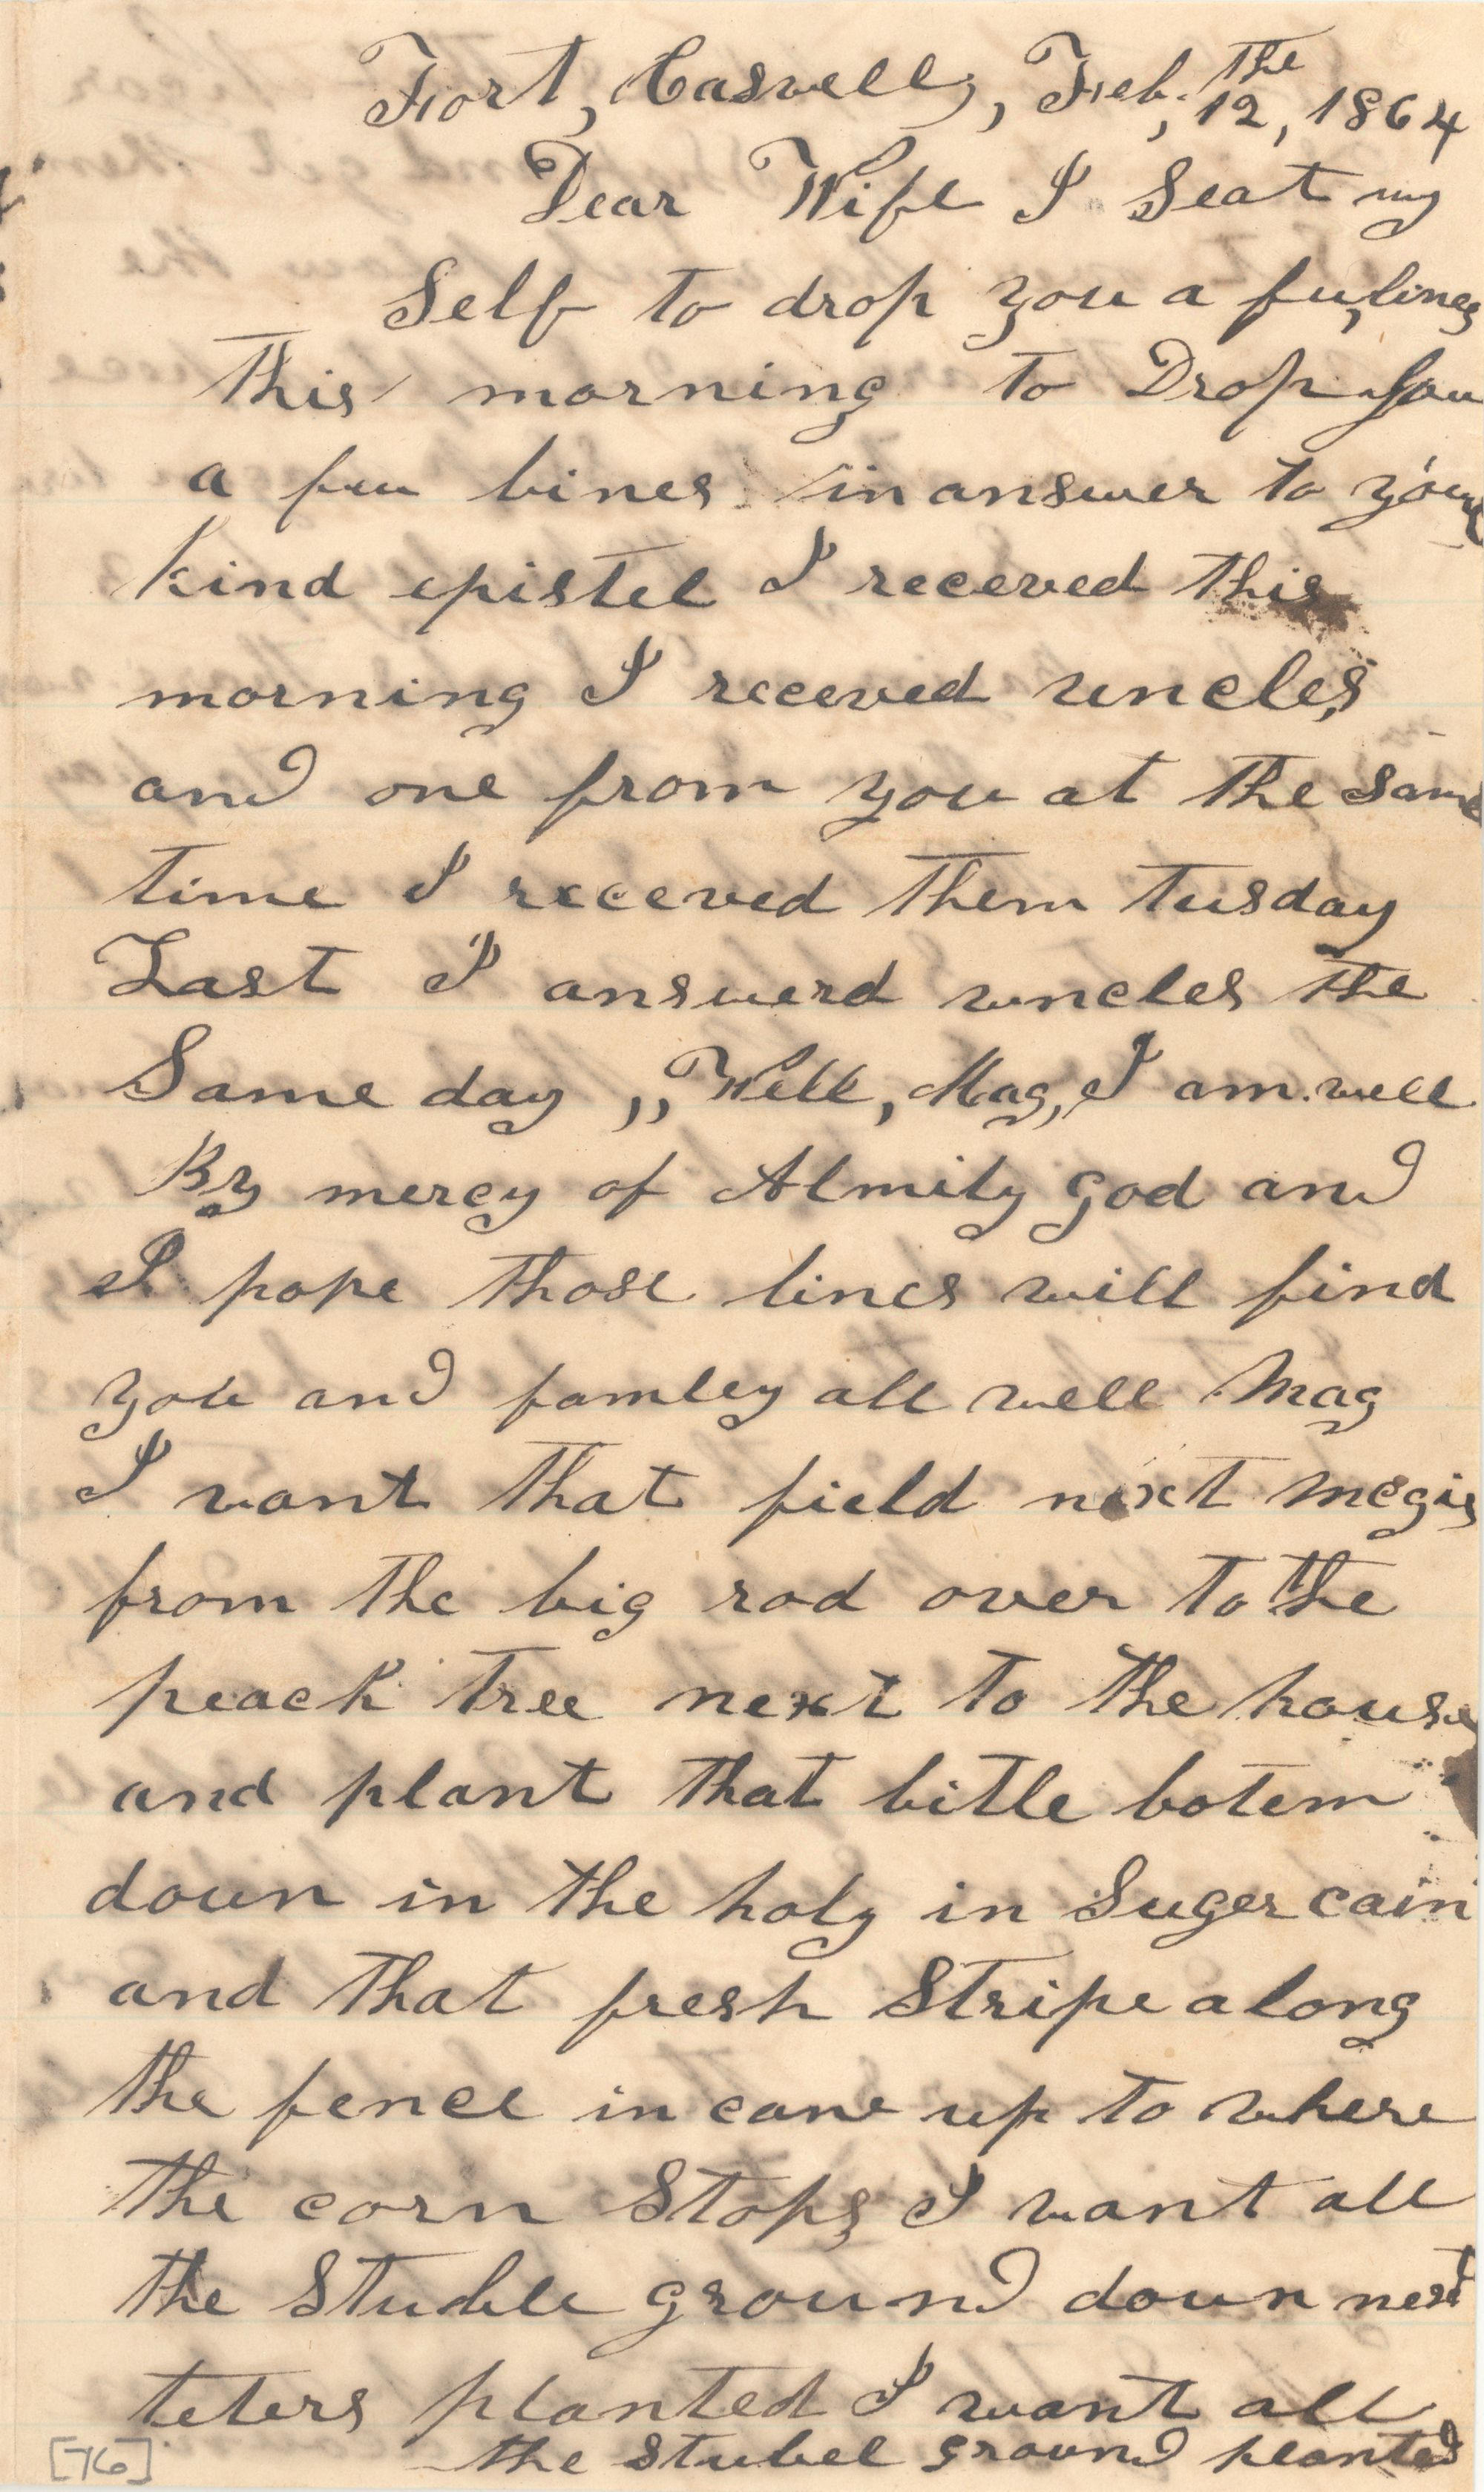 Fort, Caswell, Feb. the, 12, 1864
Dear Wife I Seat my
Self to drop you a fu, lines
this morning to Drop you
a fue lines in answer to your
kind epistel I receved this
morning I receved uncles,
and one from you at the same
time I receved them tusday
Last I answerd uncles the
Same day ,, Well, Mag, I am. well
By mercy of Almity god and
I pope those lines will find
you and famley all well Mag
I want that field next Megis
from the big rod over to the
peack tree next to the house
and plant that little botem
down in the holy in Suger cain
and that fresh Stripe along
the fence in cane up to where
the corn Stops, I want all
the Stuble ground down next
teters planted I want all
the stubel ground planted
[76]